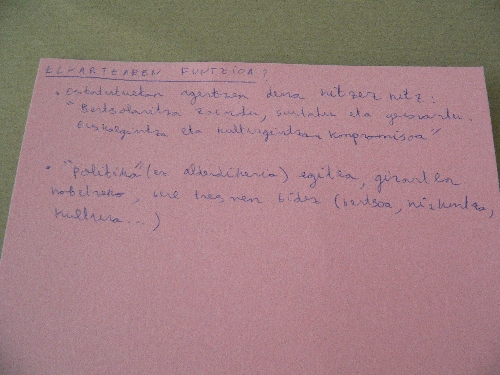 ELKARTEAREN FUNTZIOA?
• estatutuetan agertzen dena hitzez hitz:
"Bertsolaritza zaindu, sustatu eta
euskalgintza eta kulturgintzan konpromisoa"
• "politika" (ez alderdikeria) egitea, gizartea
hobetzeko, bere tresnen bidez (bertsoa, hizkuntza,
kultura...)